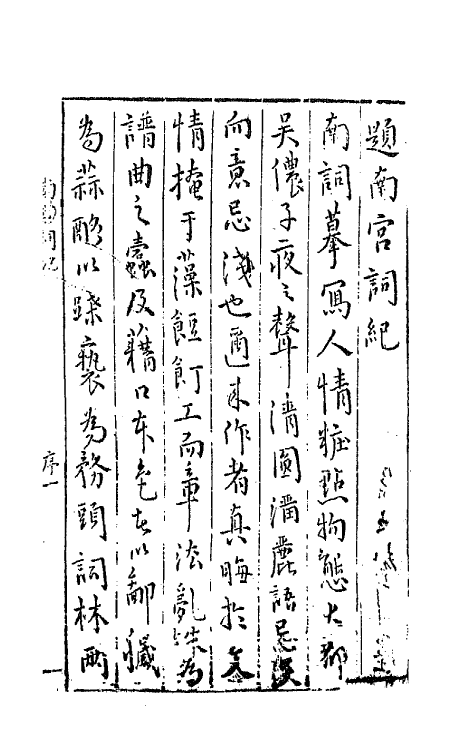 題南宮詞紀
南詞摹寫人情粧點物態大都
吳儂子夜之聲清圓溜麗語忌深
而意忌淺也邇來作者真晦於文
情掩于藻飣餖工而章法亂誠為
譜曲之蠹及藉口本色者以鄙穢
為蒜酪以蹀褻為務頭詞林兩
南宮詞紀
序
一